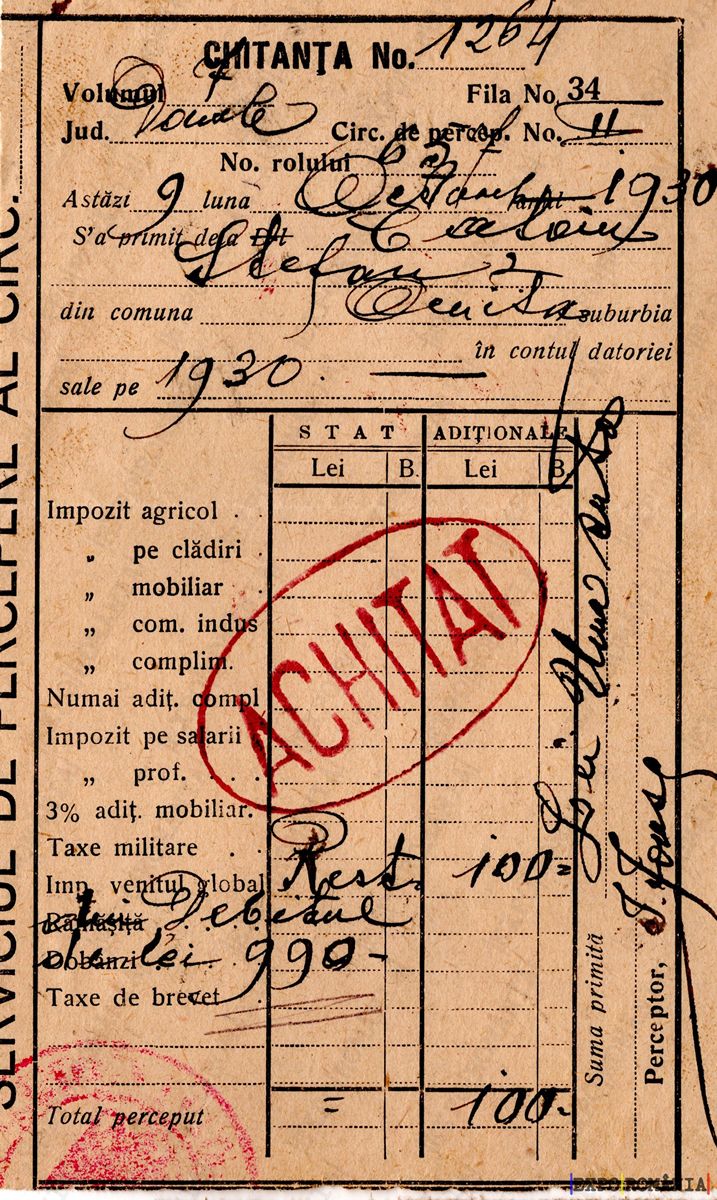 CHITANȚA No. 1264
Volumul 7 Fila No. 34
Jud. Circ. de percep. No. II
No. rolului 637
Astăzi 9 luna Octombr anul 1930
S'a primit dela D-l
Stefan I
din comuna Ocnița suburbia
în contul datoriei
sale pe 1930.
STAT ADIȚIONALE
Lei B. Lei B.
Impozit agricol . .
„ pe clădiri .
„ mobiliar
„ com. indus
„ complim.
Numai adiț. compl
Impozit pe salarii
„ prof. . . .
3% adiț. mobiliar.
Taxe militare . .
Imp. venitul global Rest= 100=
Rămășiță Debitul
Dobânzi de lei 990-
Taxe de brevet .
Total perceput = 100-
ACHITAT
Suma primită Lei Una suta
Perceptor,
SERVICIUL DE PERCEPERE AL CIRC.
EXPO ROMÂNIA